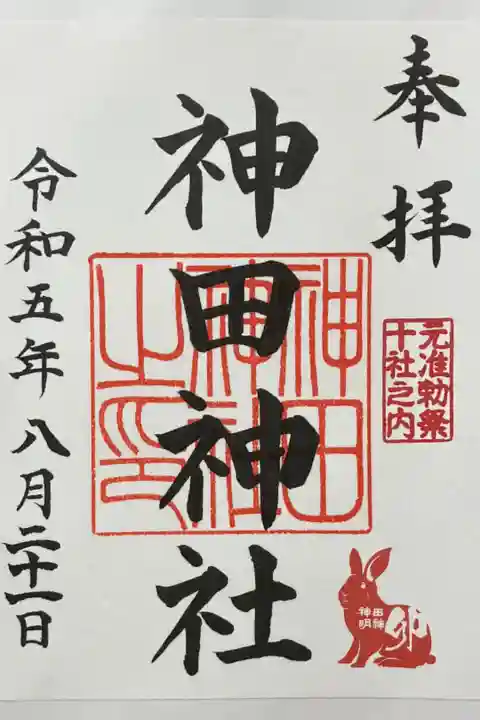 奉拝
元准勅祭
十社之内
神田神社
神田
神社
之印
卯
神田
明神
令和五年八月二十一日